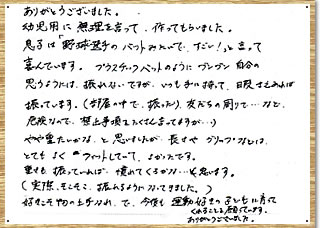 ありがとうございました。
幼児用に無理を言って、作ってもらいました。
息子は「野球選手のバットみたいで、すごい!」と言って
喜んでいます。プラスチックバットのようにブンブン自分の
思うようには、振れないですが、いつも手に持って、目覚さえあれば
振っています。(部屋の中で、振ったり、友だちの周りで…など、
危険なので、禁止事項もたくさんありますが…)
やや重たいかな、と思いましたが、長さやグリップなどは、
とてもよくフィットしていて、よかったです。
重さも振っていれば、慣れてくるかな…と思います。
(実際、そこそこ、振れるようになってきました。)
好きこそ物の上手なれ、で、今後も運動好きの子どもに育って
くれることを願っています。
ありがとうございました。